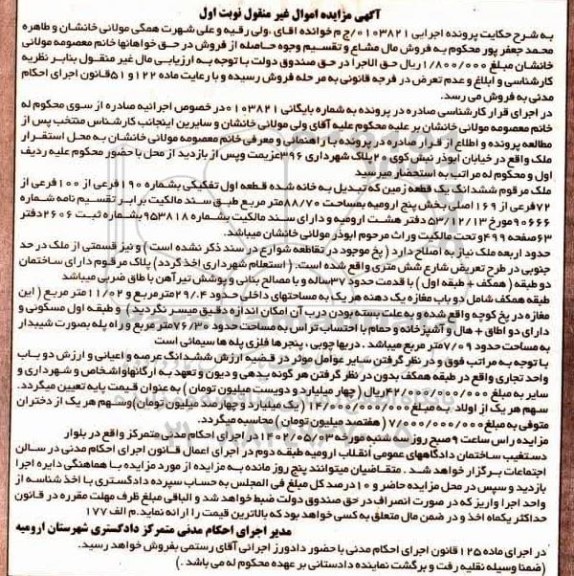 آگهی مزایده اموال غیر منقول نوبت اول
به شرح حکایت پرونده اجرایی ۰۱۰۳۸۲۱/ج م خوانده اقای :ولی رقیه و علی شهرت همگی مولانی خانشان و طاهره
محمد جعفر پور محکوم به فروش مال مشاع و تقسیم وجوه حاصله از فروش در حق خواهانها خانم معصومه مولانی
خانشان مبلغ ۱/۸۰۰/۰۰۰ریال حق الاجرا در حق صندوق دولت با توجه به ارزیابی مال غیر منقول بنابر نظریه
کارشناسی و ابلاغ و عدم تعرض در فرجه قانونی به مر حله فروش رسیده و با رعایت ماده ۱۲۲و ۵۱قانون اجرای احکام
مدنی به فروش می رسد.
در اجرای قرار کارشناسی صادره در پرونده به شماره بایگانی ۰۱۰۳۸۲۱ درخصوص اجرائیه صادره از سوی محکوم له
خانم معصومه مولانی خانشان بر علیه محکوم علیه آقای ولی مولانی خانشان و سایرین اینجانب کارشناس منتخب پس از
مطالعه پرونده و اطلاع از قرار صادره در پرونده با راهنمائی و معرفی خانم معصومه مولانی خانشان به محل استقرار
ملک واقع در خیابان ابوذر نبش کوی ۲۰پلاک شهرداری ۳۹۶عزیمت وپس از بازدید از محل با حضور محکوم علیه ردیف
اول و محکوم له مراتب به استحضار میرسید
ملک مرقوم ششدانگ یک قطعه زمین که تبدیل به خانه شده قطعه اول تفکیکی بشماره ۱۹۰فرعی از ۱۰۰فرعی از
۷۲فرعی از ۱۶۹اصلی بخش پنج ارومیه بمساحت ۸۸/۷۰متر مربع طبق سند مالکیت برابر تقسیم نامه شماره
۹۰۶۶۶مورخ ۵۳/۱۲/۱۳دفتر هشت ارومیه و دارای سند مالکیت بشماره ۹۵۳۸۱۸بشماره ثبت ۲۶۰۶دفتر
۶۳صفحه ۴۹۹و تحت مالکیت وراث مرحوم ابوذر مولانی خانشان میباشد.
حدود اربعه ملک نیاز به اصلاح دارد ( پخ موجود در تقاطعه شوارع در سند ذکر نشده است ) و نیز قسمتی از ملک در حد
جنوبی در طرح تعریض شارع شش متری واقع شده است. ( استعلام شهرداری اخذ گردد) پلاک مرقوم دارای ساختمان
دو طبقه ( همکف + طبقه اول ) با قدمت حدود ۳۷ساله و با مصالح بنائی و پوشش تیرآهن با طاق ضربی میباشد
طبقه همکف شامل دو باب مغازه یک دهنه هر یک به مساحتهای داخلی حدود ۲۹/۰۴مترمربع و ۱۱/۰۲متر مربع ( این
مغازه در پخ کوچه واقع شده و به علت بسته بودن درب آن امکان اندازه دقیق میسر نگردید ) و طبقه اول مسکونی و
دارای دو اطاق + هال و آشپزخانه و حمام با احتساب تراس به مساحت حدود ۷۶/۳۰متر مربع و راه پله بصورت شیبدار
به مساحت حدود ۷/۰۹متر مربع میباشد . دربها چوبی ، پنجرها فلزی پله ها سیمانی است
با توجه به مراتب فوق و در نظر گرفتن سایر عوامل موثر در قضیه ارزش ششدانگ عرصه و اعیانی و ارزش دو باب
واحد تجاری واقع در طبقه همکف بدون در نظر گرفتن هر گونه بدهی و دیون و تعهد به ارگانهاواشخاص و شهرداری و
سایر به مبلغ ۴۲/۰۰۰/۰۰۰/۰۰۰ریال ( چهار میلیارد و دویست میلیون تومان ) به عنوان قیمت پایه تعیین میگردد.
سهم هر یک از اولاد به مبلغ ۱۴/۰۰۰/۰۰۰/۰۰۰ ( یک میلیارد و چهارصد میلیون تومان)وسهم هر یک از دختران
متوفی به مبلغ ۷/۰۰۰/۰۰۰/۰۰۰ ( هفتصد میلیون تومان ) محاسبه میگردد.
مزایده راس ساعت ۹صبح روز شنبه مورخه در محل اجرای احکام مدنی متمرکز واقع در بلوار
دستغیب ساختمان دادگاههای عمومی انقلاب ارومیه طبقه دوم در اجرای اعمال قانون اجرای احکام مدنی در سالن
اجتماعات برگزار خواهد شد . متقاضیان میتوانند پنج روز مانده به مزایده از مورد مزایده با هماهنگی دایره اجرا
بازدید و سپس در محل مزایده حاضر و ۱۰درصد کل مبلغ فی المجلس به حساب سپرده دادگستری با اخذ شناسه از
واحد اجرا واریز که در صورت انصراف در حق صندوق دولت ضبط خواهد شد و الباقی مبلغ ظرف مهلت مقرره در قانون
حداکثر یکماه اخذ و در ضمن مال متعلق به کسی خواهد بود که بالاترین قیمت را ارائه نماید.م الف ۱۷۷
مدیر اجرای احکام مدنی متمرکز دادگستری شهرستان ارومیه
در اجرای ماده ۱۲۵قانون اجرای احکام مدنی با حضور دادورز اجرائی آقای رستمی بفروش خواهد رسید.
(ضمنا وسیله نقلیه رفت و برگشت نماینده دادستانی بر عهده محکوم له می باشد .)